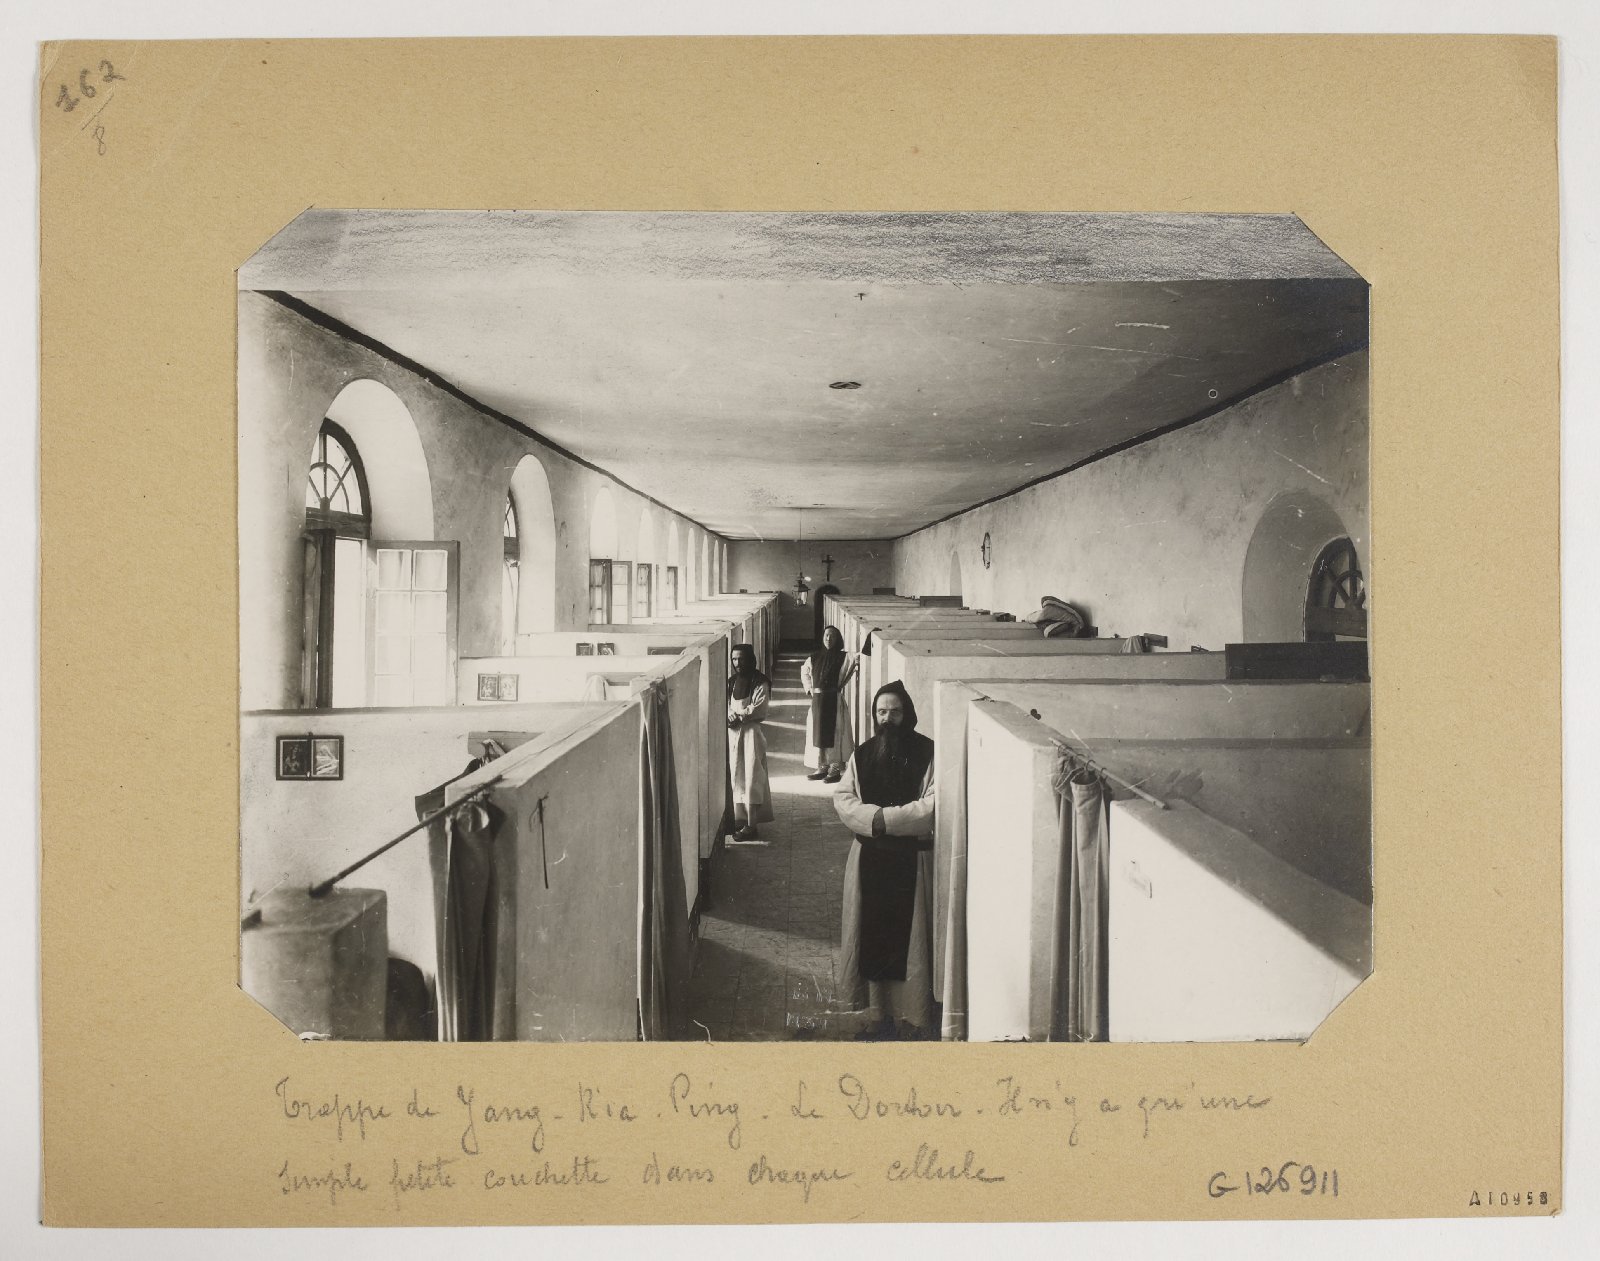 162
8
Trappe de Yang-Kia-Ping. Le Dortoir. Il n'y a qu'une
simple petite couchette dans chaque cellule
G 126911
A10958